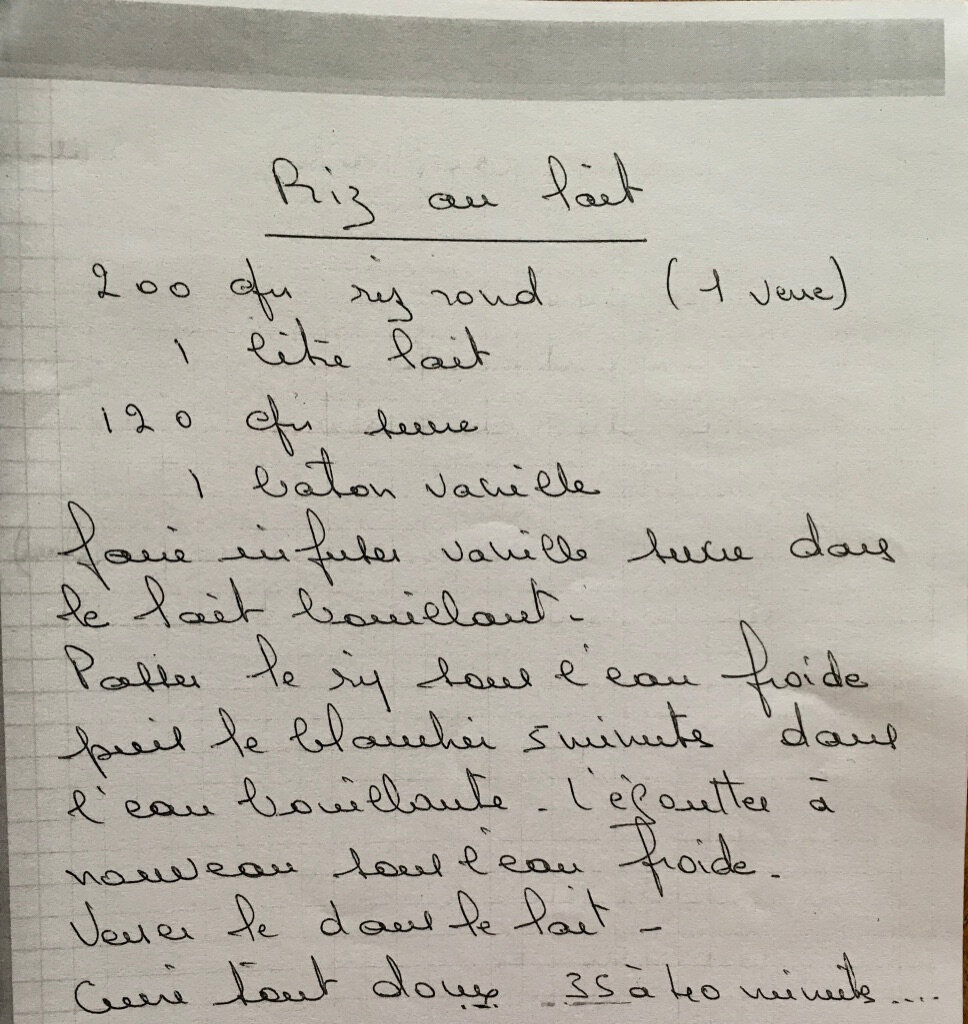 Riz au lait
200 gr riz rond (1 verre)
1 litre lait
120 gr sucre
1 baton vanille
faire infuser vanille sucre dans
le lait bouillant -
Passer le riz sous l'eau froide
puis le blanchir 5 minutes dans
l'eau bouillante - L'égoutter à
nouveau sous l'eau froide -
Verser le dans le lait -
Cuire tout doux 35 à 40 minutes ....